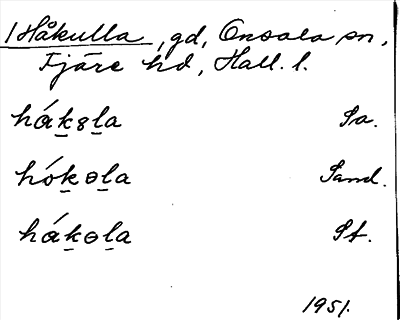 1 Håkulla, gd, Onsala sn,
Fjäre hd, Hall. l.
håk8la Sa.
hókəla Sand.
håkəla St.
1951.